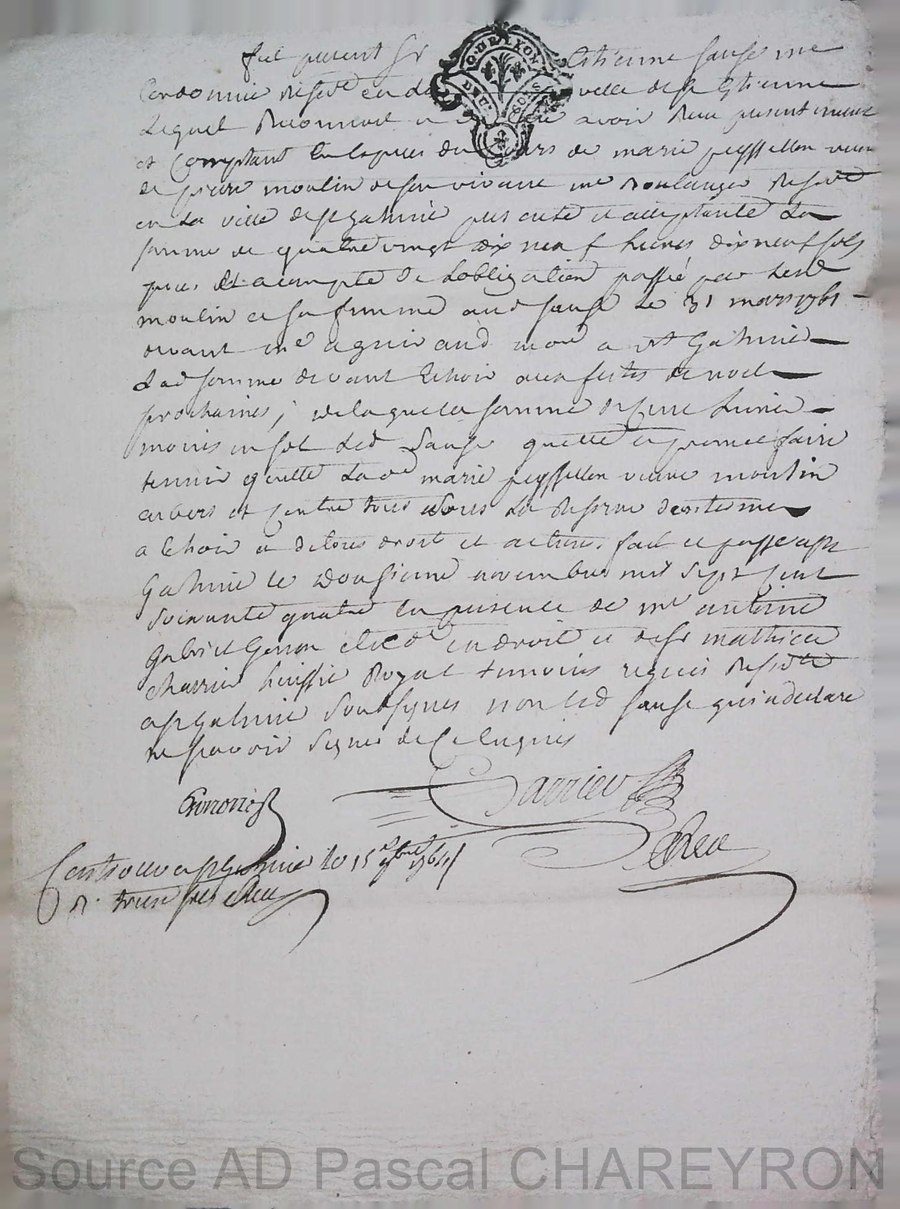 fut present Sr Estienne Sause me
Cordonnier resid en la ville de St Etienne
Lequel reconnoit avoir reçu presentement
et Comptant En especes du cours de marie peyssellon veuve
de pierre moulin de son vivant me Boulanger resid
en la ville de St galmier presente et acceptante La
somme de quatre vingt dix neuf livres dix neuf sols
pour et a compte de Lobligation passé par Led
moulin et sa femme aud Sause Le 31 mars 1761
devant me aguiraud no a St Galmier
Lad somme devant Echoir aux festes de noel
prochaines, de laquelle somme de Cent Livres
moins un sol Led Sause quitte et promet faire
tenir quitte Lad marie peyssellon veuve moulin
envers et Contre tous sous La reserve
a Echoir et de tous droit et actions, fait et passé a St
Galmier le Douzieme novembre mil sept Cent
soixante quatre En presence de me antoine
Gabriel Gonon clerc en droit et de Sr mathieu
Charrier huissier Royal temoins requis resid
a St Galmier Soussignes non Led Sause qui a declaré
ne scavoir signer de Ce Enquis
G. DE LYON
DEUX SOLS
Charrier
Controlé a St galmier le 15e 9bre 1764
R. treize sols
Source AD Pascal CHAREYRON